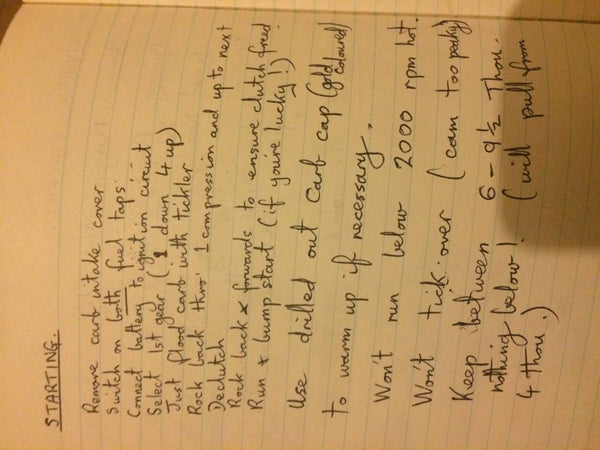 STARTING.
Remove carb intake cover
Switch on both fuel taps.
Connect battery to ignition circuit
Select 1st gear (1 down 4 up)
Just flood carb with tickler
Rock back thro' 1 compression and up to next
Declutch
Rock back & forwards to ensure clutch freed
Run & bump start (if you're lucky!)
Use drilled out carb cap (gold coloured)
to warm up if necessary.
Won't run below 2000 rpm hot.
Won't tick over (cam too peaky)
Keep between 6 - 9½ Thou.
nothing below! (will pull from
4 thou.)